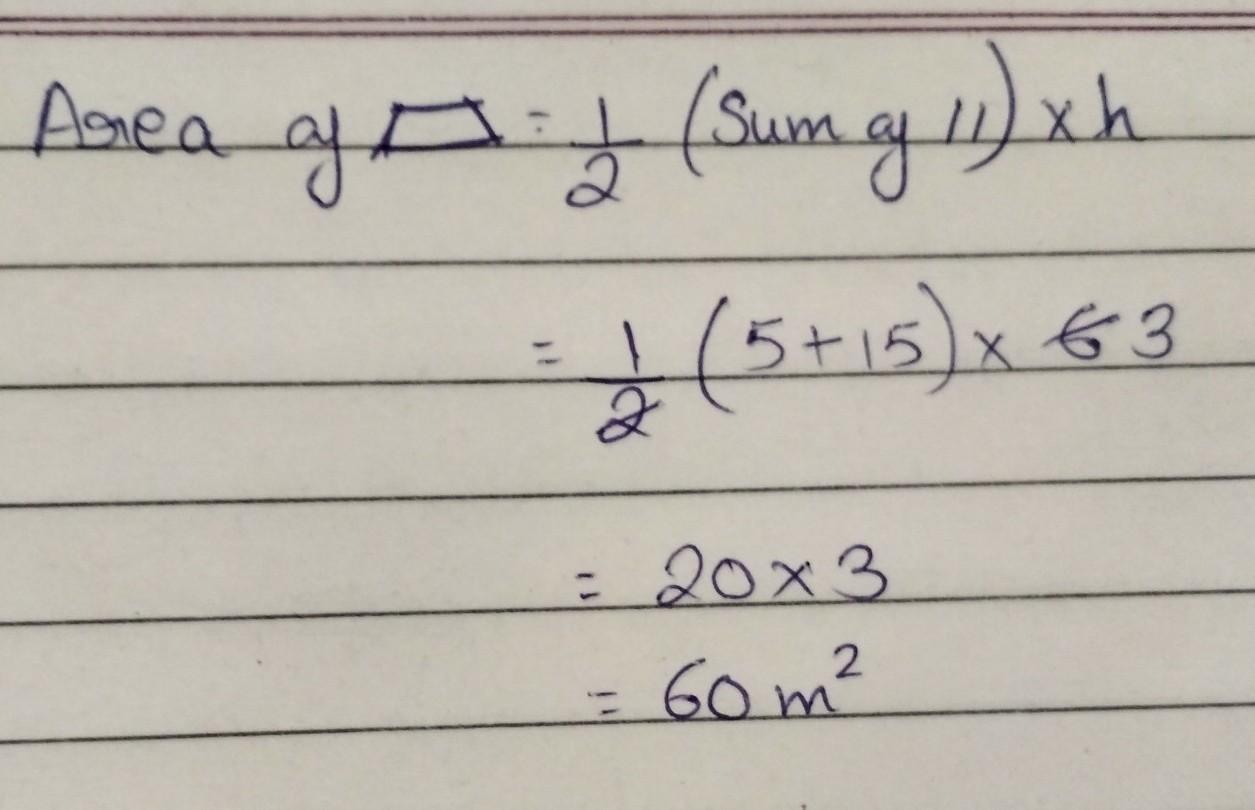 Area of ▱ = 1/2 (Sum of ||) x h
= 1/2 (5+15) x 6 3
= 20 x 3
= 60 m²